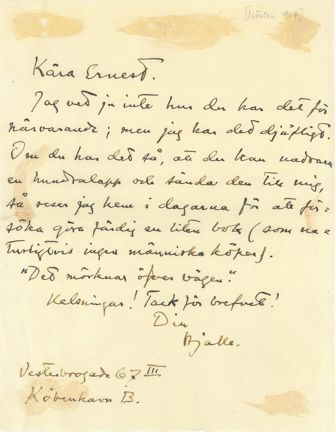 Hösten 1907
Kära Ernest.
Jag vet ju inte hur du har det för
närvarande; men jag har det djäfligt.
Om du har det så, att du kan undvara
en hundralapp och sända den till mig,
så reser jag hem i dagarna för att för-
söka göra färdig en liten bok (som na-
turligtvis ingen människa köper).
"Det mörknar öfver vägen".
Helsningar! Tack för brefvet!
Din
Hjalle.
Vesterbrogade 67 III
København B.